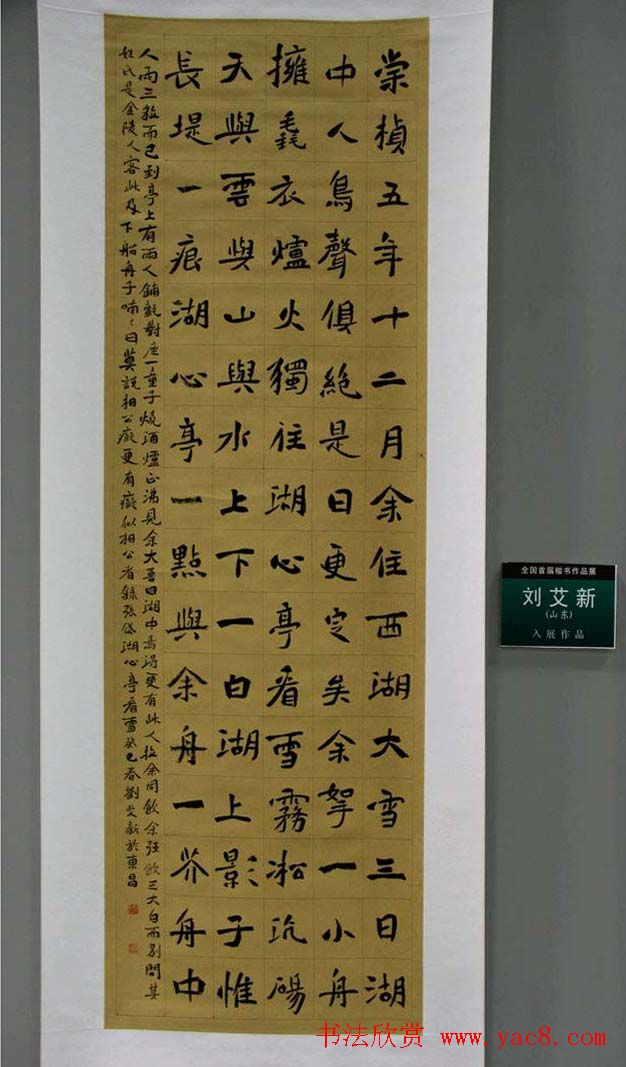 崇禎五年十二月余住西湖大雪三日湖
中人鳥聲俱絕是日更定矣余拏一小舟
擁毳衣爐火獨往湖心亭看雪霧凇沆碭
天與雲與山與水上下一白湖上影子惟
長堤一痕湖心亭一點與余舟一芥舟中
人兩三粒而已到亭上有兩人鋪氈對座一童子燒酒爐正沸見余大喜曰湖中焉得更有此人拉余同飲余強飲三大白而別問其
姓氏是金陵人客此及下船舟子喃々曰莫說相公癡更有癡似相公者錄張岱湖心亭看雪癸巳春劉艾新於東昌
全国首届楷书作品展
刘艾新
(山东)
入展作品
书法欣赏 www.yac8.com